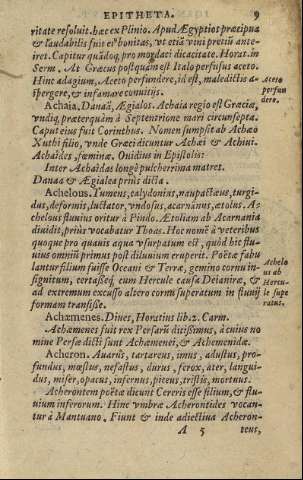 EPITHETA. 9
ritate resoluit. hæc ex Plinio. Apud Ægyptios præcipua
& laudabilis fuit eius bonitas, vt etiā vini pretiū ante-
iret. Capitur quādoq, pro mordaci dicacitate. Horat. in
Serm. At Græcus postquàm est Italo perfusus aceto.
Hinc adagium, Aceto perfundere, id est, maledictis a-
spergere, & infamare conuitijs.
Aceto
perfun
dere.
Achaia, Danaä, Ægialos. Achaia regio est Græciæ,
vndiq, præterquàm à Septentrione mari circumsepta.
Caput eius fuit Corinthus. Nomen sumpsit ab Achæo
Xuthi filio, vnde Græci dicuntur Achæi & Achiui.
Achaïdes, fœminæ. Ouidius in Epistolis:
Inter Achaïadas longè pulcherrima matres.
Danaa & Ægialea priùs dicta.
Achelous. Tumens, calydonius, naupactæus, turgi-
dus, deformis, luctator, vndosus, acarnānus, ætolus. A-
chelous fluuius oritur à Pindo. Ætoliam ab Acarnania
diuidit, priùs vocabatur Thoas. Hoc nomē à veteribus
quoque pro quauis aqua vsurpatum est, quòd hic flu-
uius omniū primus post diluuium eruperit. Poëtæ fabu
lantur filium fuisse Oceani & Terræ, gemino cornu in-
signitum, certasseq́, cum Hercule causa Deianiræ, &
ad extremum excusso altero cornu superatum in fluuij
formam transisse.
Achelo
us ab
Hercu-
le supe
ratus.
Achæmenes. Diues, Horatius lib. 2. Carm.
Achæmenes fuit rex Persarū ditissimus, à cuius no
mine Persæ dicti sunt Achæmenei, & Achemenidæ.
Acheron. Auarus, tartareus, imus, adustus, pro-
fundus, mœstus, nefastus, durus, ferox, ater, langui-
dus, miser, opacus, infernus, piteus, tristis, mortuus.
Acherontem poëtæ dicunt Cereris esse filium, & flu-
uium inferorum. Hinc vmbræ Acherontides vocan-
tur à Mantuano. Fiunt & inde adiectiua Acheron-
A 5 teus,